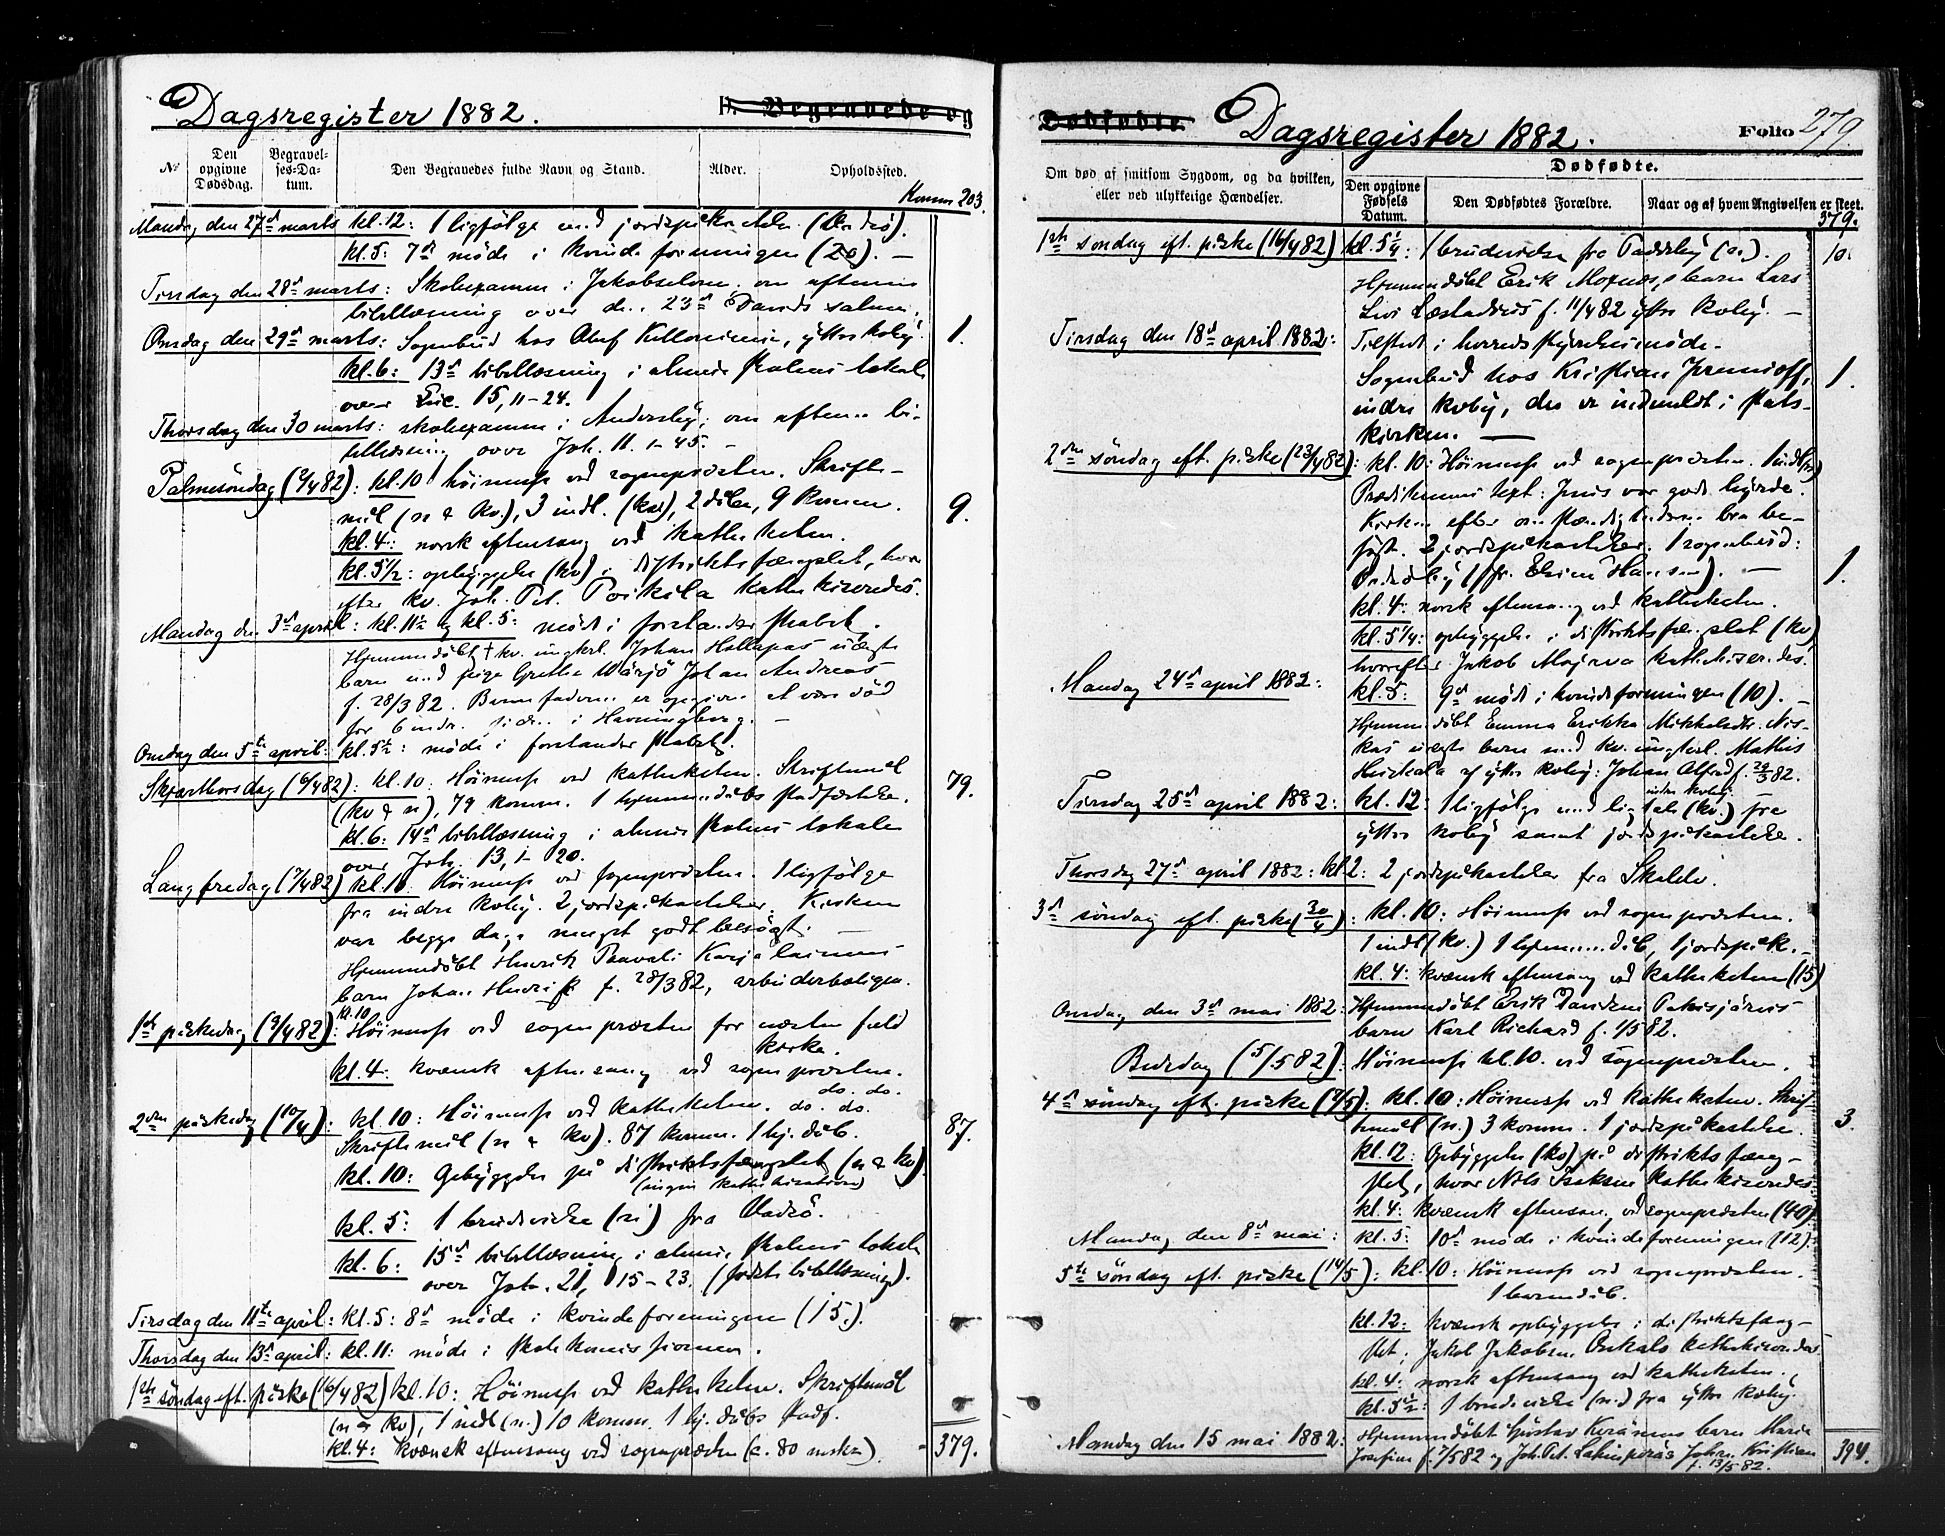 Dagsregister 1882.
D. Begravede og
No
Den opgivne Dødsdag.
Begravelses-Datum.
Den Begravedes fulde Navn og Stand.
Alder.
Opholdssted.
Komm 203.
Mandag den 27de marts kl. 12: 1 ligfölge med jordspåkastelse
kl. 5: 7de möde i kvindeforeningen (20). —
Tirsdag den 28de marts: Skoleexamen i Jakobselven, om aftenen
bibellæsning over den 23de Davids salme.
Onsdag den 29de marts: Sognebud hos Oluf ytterkoby. 1.
kl. 6: 13de bibellæsning i almueskolens lokale
over Luc. 15, 11-24.
Thorsdag den 30 marts: skoleexamen i Andersby; om aftenen bi-
bellæsning over Joh. 11. 1-45. -
Palmesöndag (2/4 82): kl. 10 höimesse ved sognepræsten. Skrifte-
mål (n & kv.), 3 indl. (kv), 2 dåb, 9 komm. 9.
kl. 4: norsk aftensang ved katheketen.
kl. 5 1/2: opbyggelse (kv) i distriktsfængslet, hvor-
efter kv. Joh. Pet. Poikela kathekiseredes.
Mandag den 3de april: kl. 11 1/2 og kl. 5: möde i forstanderskabet.
Hjemmedöbt kv. ungkarl Johan uægte
barn med pige Grethe Johan Andreas
f. 28/3 82. Barnefaderen er opgiven at være död
for 6 i Havningberg. —
Onsdag den 5te april: kl. 5 1/2: möde i forstanderskabet.
Skjærthorsdag (6/4 82): kl. 10: Höimesse ved katheketen. Skriftemål
(kv & n), 79 komm. 1 hjemmedåbs stadfæstelse. 79.
kl. 6: 14de bibellæsning i almueskolens lokale
over Joh. 13, 1- 20.
Langfredag (7/4 82) kl. 10: Höimesse ved sognepræsten. 1 ligfölge
fra indre koby. 2 jordspåkastelser. Kirken
var begge dage meget godt besögt. —
Hjemmedöbt Henrik Paavali Karjalainens
barn Johan Henrik f. 28/3 82, arbeiderboligen.
1ste påskedag (9/4 82): kl. 10 Höimesse ved sognepræsten for næsten fuld
kirke.
kl. 4: kvænsk aftensang ved sognepræsten.
do. do.
2den påskedag (10/4): kl. 10: Höimesse ved katheketen. do. do.
Skriftemål (n & kv). 87 komm. 1 hj. dåb. 87.
kl. 10: Opbyggelse på distriktsfængslet (n & kv)
(ingen kathekisation)
kl. 5: 1 brudevielse (n) fra Vadsö.
kl. 6: 15de bibellæsning i almueskolens lokale
over Joh. 21, 15-23. (sidste bibellæsning).
Tirsdag den 11te april: kl. 5: 8de möde i kvindeforeningen (15).
Thorsdag den 13de april: kl. 11: möde i skolekommissionen.
1ste söndag eft. påske (16/4 82) kl. 10: Höimesse ved katheketen. Skriftemål
(n & kv), 1 indl (n.) 10 komm. 1 hj. dåbs stadf.
kl. 4: kvænsk aftensang ved sognepræsten (c. 80 mskr). - 379.
Dødfødte.
Dagsregister 1882.
Folio 279.
Om død af smitsom Sygdom, og da hvilken, eller ved ulykkelige Hændelser.
Dødfødte.
Den opgivne Fødsels Datum.
Den Dødfødtes Forældre.
Naar og af hvem Angivelsen er skeet.
379.
1ste söndag eft. påske (16/4 82) kl. 5 1/4: 1 brudevielse fra Paddeby (n.). 10.
Hjemmedöbt Erik barn Lars
Levi Læstadius f. 11/4 82 ytre koby. —
Tirsdag den 18de april 1882: Tilstede i herredsstyrelsesmöde.
Sognebud hos Kristian 1.
indre koby, der er indmeldt i stats-
kirken. —
2den söndag eft. påske (23/4 82): kl. 10: Höimesse ved sognepræsten. 1 indl.
Prædikenens text: Jesus var gode hyrde.
Kirken efter omstændighederne bra be-
sögt. 2 jordspåkastelser. 1 sognebud:
Hansen). — 1.
kl. 4: norsk aftensang ved katheketen.
kl. 5 1/4: opbyggelse i distriktsfængslet (kv)
hvorefter Jakob Majava kathekiseredes.
Mandag 24de april 1882: kl. 5: 9de möde i kvindeforeningen (10). -
Hjemmedöbt Emma Erikka Mikkelsdtr. Nis-
kas uægte barn med kv. ungkarl. Mathis
Heiskala af ytre koby: Johan Alfred f. 29/3 82.
indre koby.
Tirsdag 25de april 1882: kl. 12: 1 ligfölge med ligtale (kv.) fra
ytre koby samt jordspåkastelse.
Thorsdag 27de april 1882: kl. 2: 2 jordspåkastelser fra Skaldelv.
3de söndag eft. påske (30/4): kl. 10: Höimesse ved sognepræsten.
1 indl (kv.) 1 hjemmedåb, 1 jordspåk. -
kl. 4: kvænsk aftensang ved katheketen (15)
Onsdag den 3de mai 1882: Hjemmedöbt Erik Danielsen
barn Karl Richard f. 1/5 82.
Bededag (5/5 82): Höimesse kl. 10. ved sognepræsten.
4de söndag eft. påske (7/5): kl. 10: Höimesse ved katheketen. Skrif-
temål (n.) 3 komm. 1 jordspåkastelse. 3.
kl. 12: Opbyggelse (kv) på distriktsfæng-
slet, hvor Nils Isaksen kathekiseredes.
kl. 4: kvænsk aftensang ved sognepræsten (40)
Mandag den 8de mai: kl. 5: 10de möde i kvindeforeningen (12).
5te söndag eft. påske (14/5): kl. 10: Höimesse ved sognepræsten.
1 barnedåb.
kl. 12: kvænsk opbyggelse i distriktsfæng-
slet; Jakob Jakobsen kathekiseredes
kl. 4: norsk aftensang ved katheketen.
kl. 5 1/2: 1 brudevielse (n.) fra ytre koby.
Mandag den 15 mai 1882: Hjemmedöbt Gustav Keränens barn Maria
Josefine f. 7/5 82 og Joh. Pet. Johan Kristian
f. 13/5 82. 394.